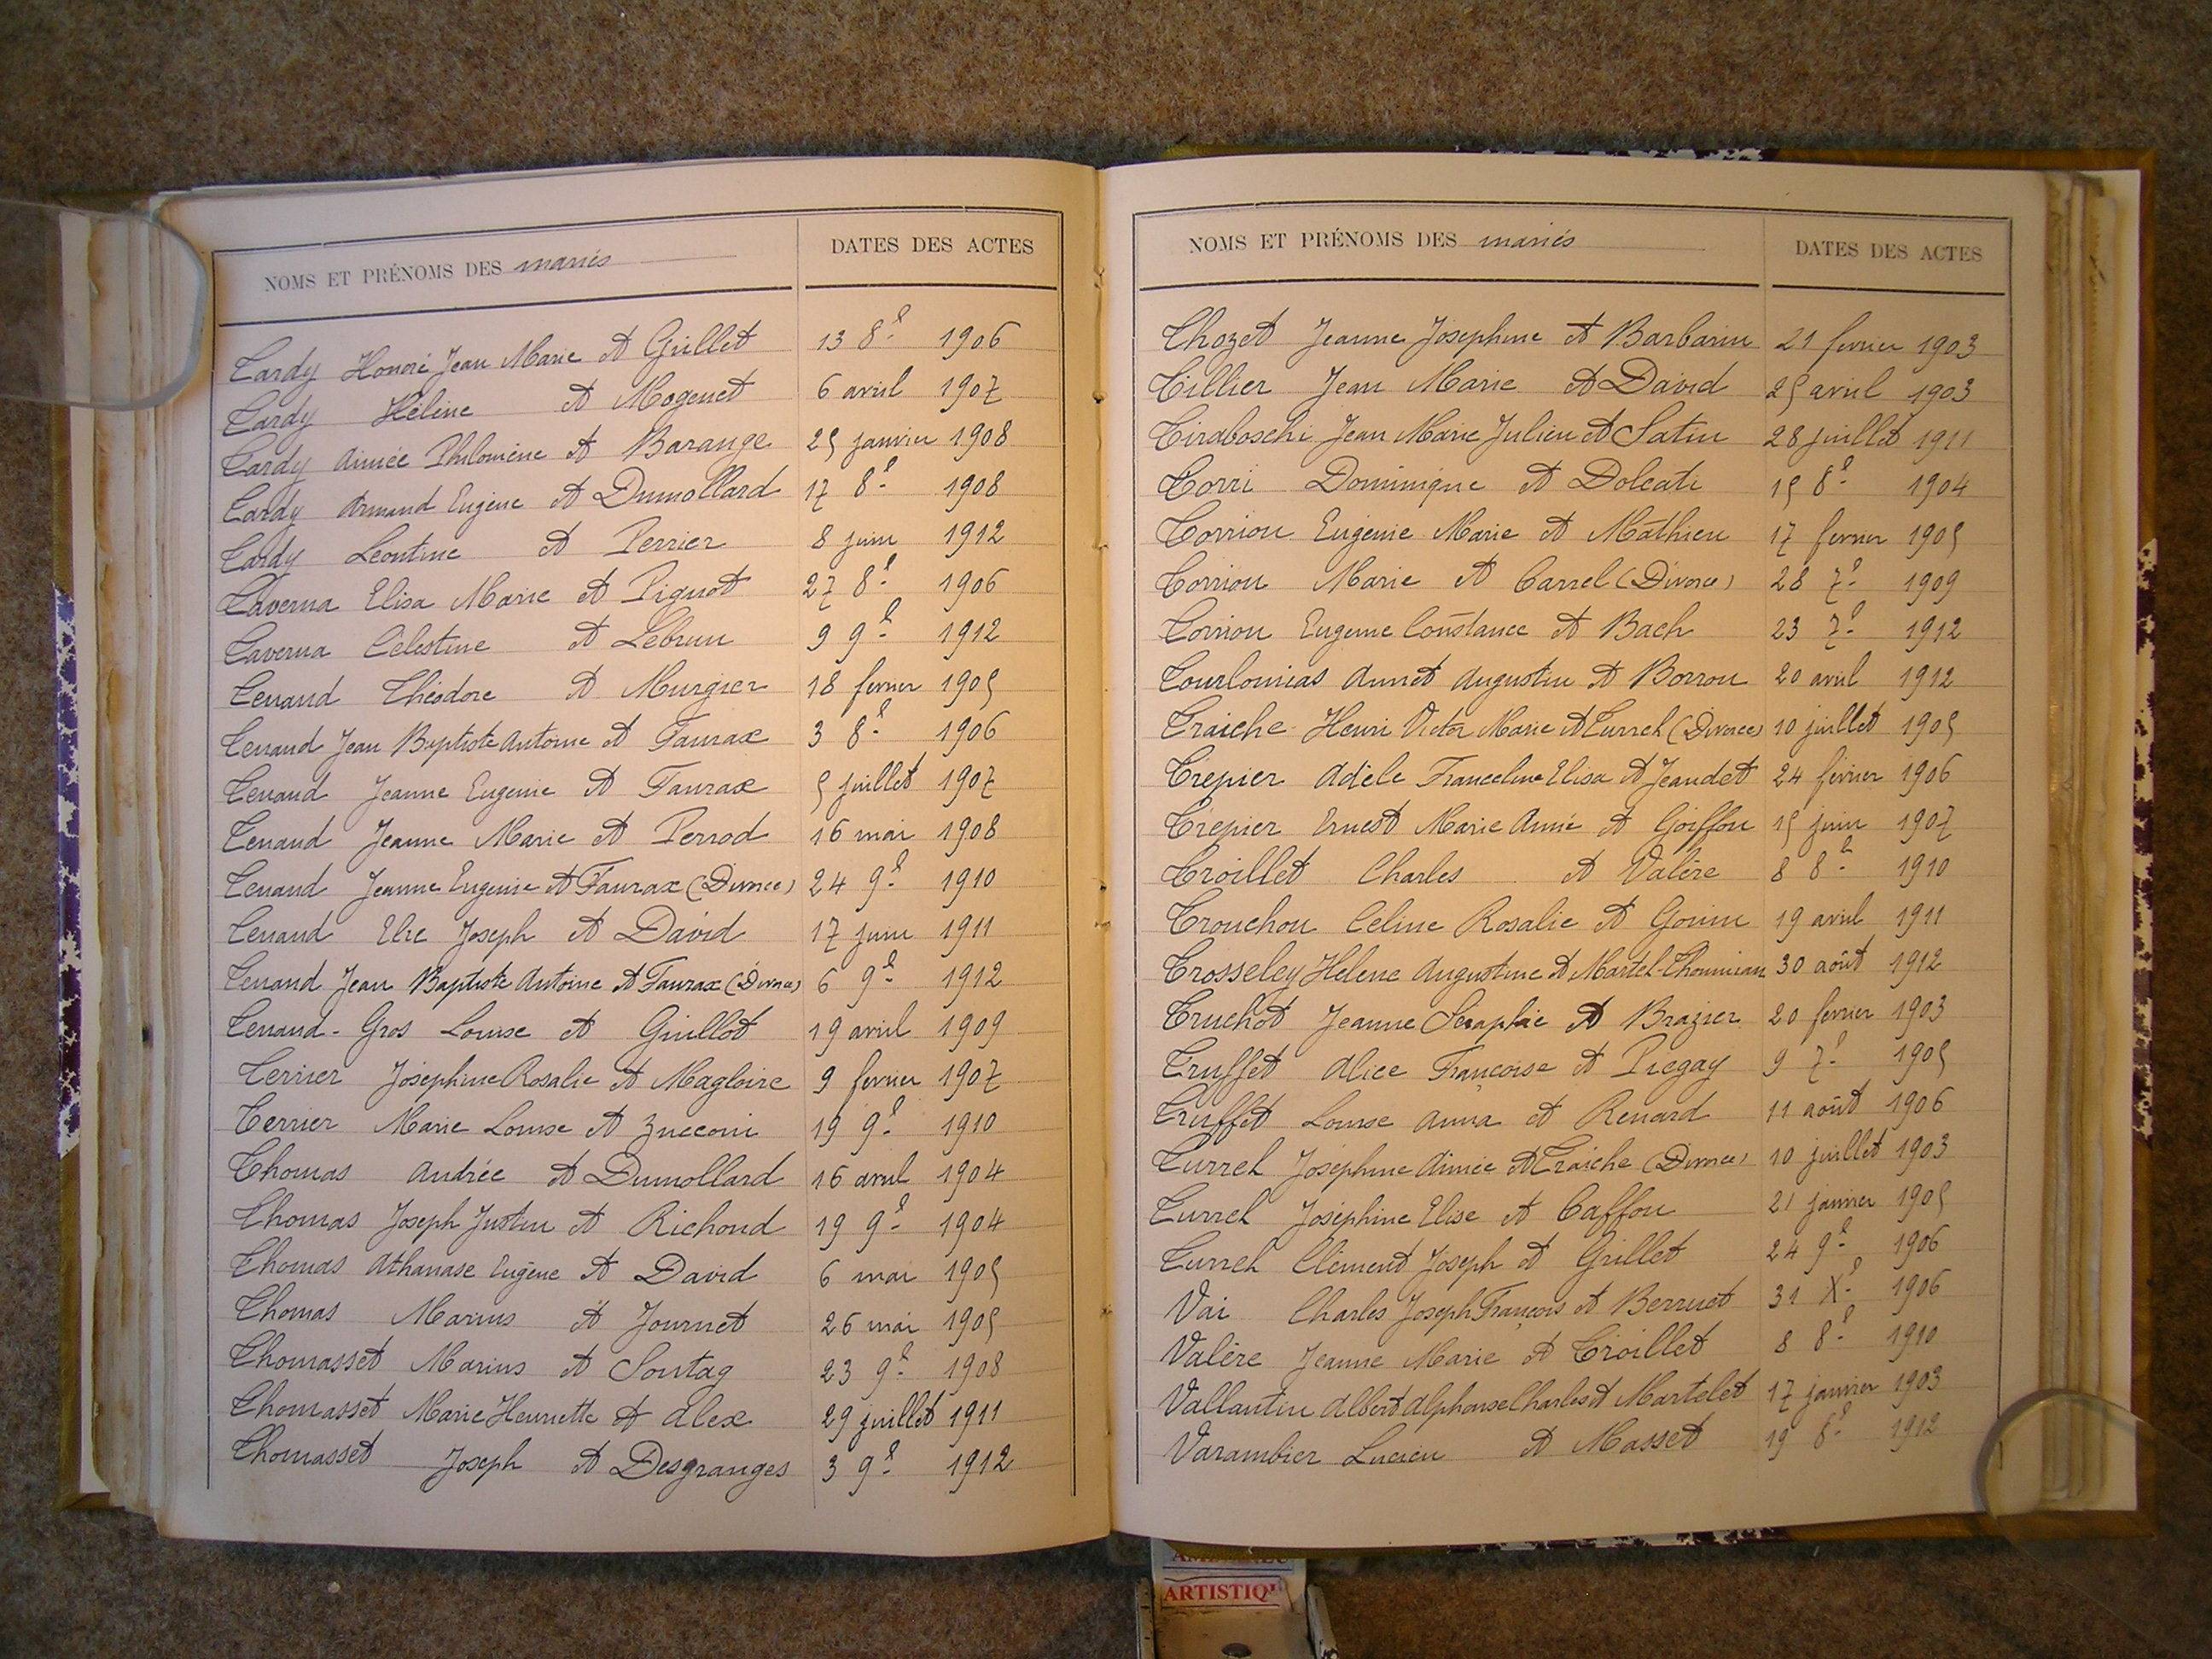 NOMS ET PRÉNOMS DES mariés DATES DES ACTES
Tardy Honoré Jean Marie et Grillet 13 8e 1906
Tardy Héline et Mogenet 6 avril 1907
Tardy Aimée Philomène et Barange 25 janvier 1908
Tardy Armand Eugène et Dumollard 17 8e 1908
Tardy Léontine et Perrier 8 juin 1912
Taverna Elisa Marie et Piguet 27 8e 1906
Taverna Célestine et Lebrun 9 9e 1912
Tenand Théodore et Murgier 18 fevrier 1905
Tenand Jean Baptiste Antoine et Faurax 3 8e 1906
Tenand Jeanne Eugenie et Faurax 5 juillet 1907
Tenand Jeanne Marie et Perrod 16 mai 1908
Tenand Jeanne Eugenie et Faurax (Divorce) 24 9e 1910
Tenand Elie Joseph et David 17 juin 1911
Tenand Jean Baptiste Antoine et Faurax (Divorce) 6 9e 1912
Tenand-Gros Louise et Guillot 19 avril 1909
Terrier Joséphine Rosalie et Magloire 9 fevrier 1907
Terrier Marie Louise et Zucconi 19 9e 1910
Thomas Andrée et Dumollard 16 avril 1904
Thomas Joseph Justin et Richond 19 9e 1904
Thomas Athanase Eugène et David 6 mai 1905
Thomas Marius et Journet 26 mai 1905
Thomasset Marius et Sontag 23 9e 1908
Thomasset Marie Henriette et Alex 29 juillet 1911
Thomasset Joseph et Desgranges 3 9e 1912
NOMS ET PRÉNOMS DES mariés DATES DES ACTES
Thozet Jeanne Joséphine et Barbarin 21 fevrier 1903
Tillier Jean Marie et David 25 avril 1903
Tiraboschi Jean Marie Julien et Satin 28 juillet 1911
Torri Dominique et Dolcati 15 8e 1904
Torrion Eugénie Marie et Mathieu 17 fevrier 1905
Torrion Marie et Carrel (Divorce) 28 7e 1909
Torrion Eugenie Constance et Bach 23 7e 1912
Tourlonias Annet Augustin et Borron 20 avril 1912
Traiche Henri Victor Marie et Turrel (Divorce) 10 juillet 1905
Trépier Adèle Franceline Elisa et Jeandet 24 février 1906
Trepier Ernest Marie Aimé et Goiffon 15 juin 1907
Troillet Charles et Valère 8 8e 1910
Trouchon Celine Rosalie et Gouin 19 avril 1911
Trosseley Helene Augustine et Martel 30 août 1912
Truchot Jeanne Seraphie et Brazier 20 fevrier 1903
Truffet Alice Françoise et Piegay 9 7e 1905
Truffet Louise Anna et Renard 11 août 1906
Turrel Joséphine Aimée et Traiche (Divorce) 10 juillet 1903
Turrel Joséphine Elise et Caffon 21 janvier 1905
Turrel Clément Joseph et Grillet 24 9e 1906
Vai Charles Joseph François et Berruet 31 Xe 1906
Valère Jeanne Marie et Troillet 8 8e 1910
Vallantin Albert Alphonse Charles et Martelet 17 janvier 1903
Varambier Lucien et Masset 19 8e 1912
ARTISTIQU